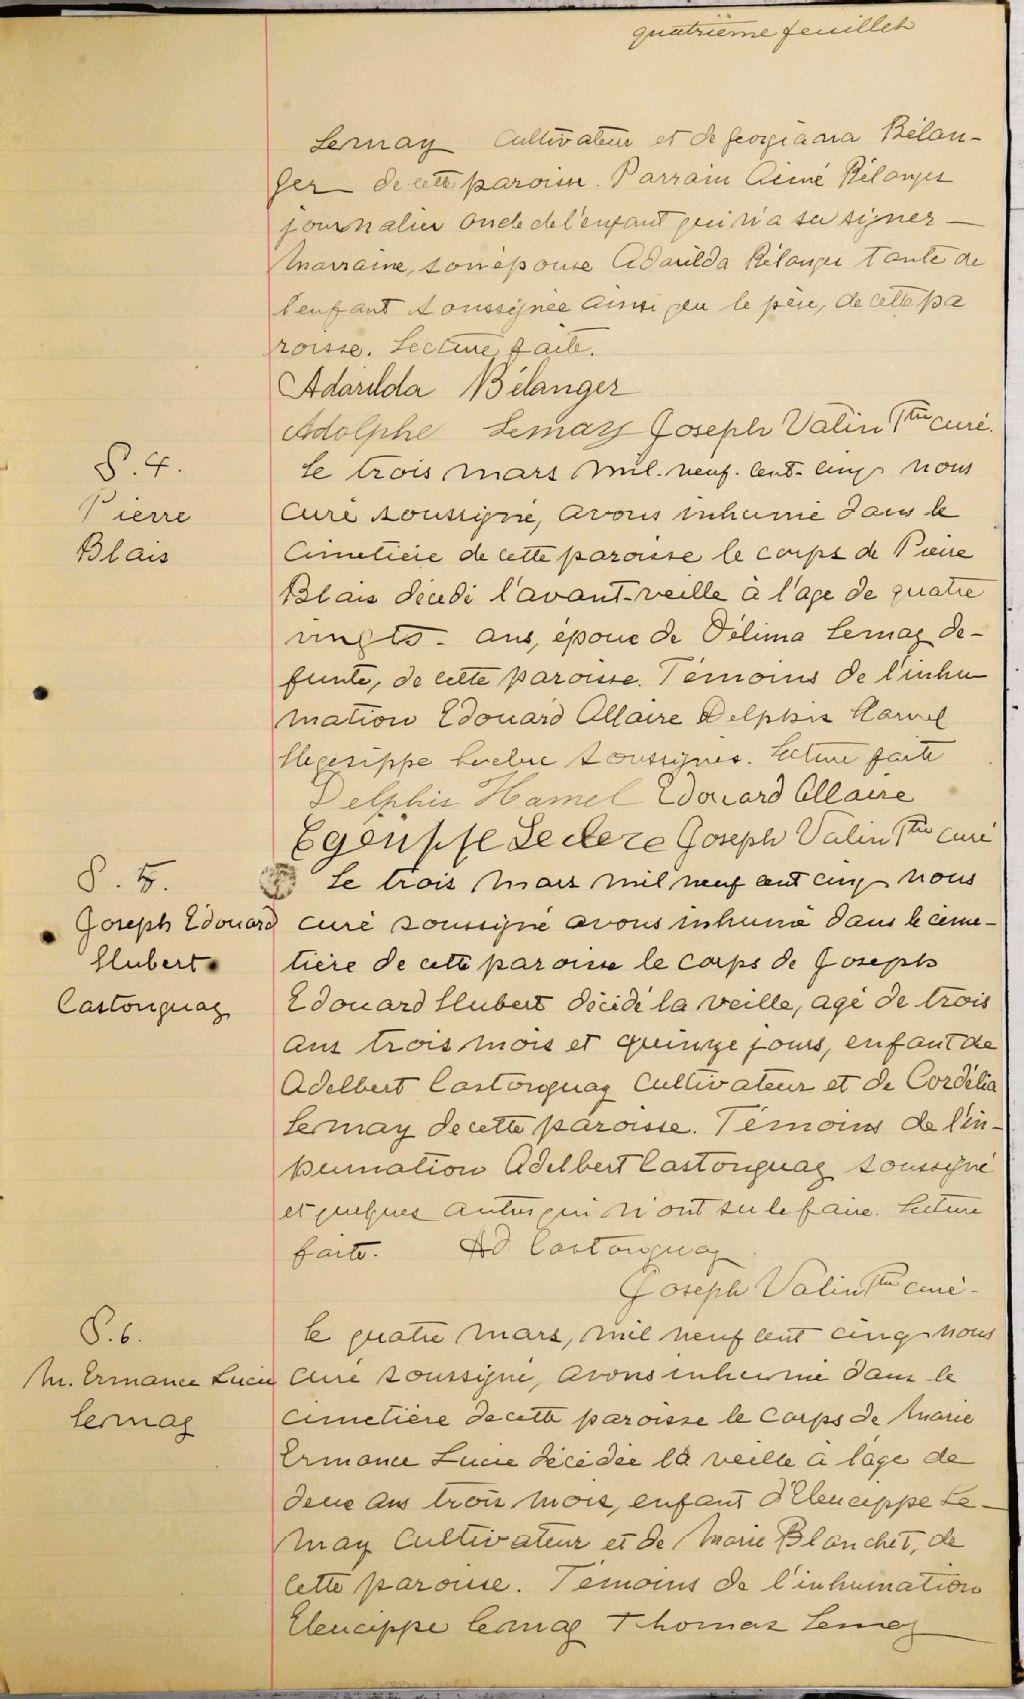 quatrième feuillet
Lemay cultivateur et de Georgianna Bélan-
ger de cette paroisse. Parrain Aimé Bélanger
journalier oncle de l'enfant qui n'a su signer —
Marraine, son épouse Adarilda Bélanger tante de
l'enfant soussignée ainsi que le père, de cette pa
roisse. Lecture faite.
Adarilda Bélanger
Adolphe Lemay Joseph Valin Ptre curé.
S. 4.
Pierre
Blais
Le trois mars mil-neuf-cent-cinq nous
curé soussigné, avons inhumé dans le
cimetière de cette paroisse le corps de Pierre
Blais décédé l'avant-veille à l'age de quatre
vingts - ans, époux de Délima Lemay dé-
funte, de cette paroisse. Témoins de l'inhu-
mation Edouard Allaire Delphis Hamel
Hegesippe Leclerc soussignés. Lecture faite
Delphis Hamel Edouard Allaire
Egésippe Leclerc Joseph Valin Ptre curé
S. 5.
Joseph Edouard
Hubert
Castonguay
Le trois mars mil neuf cent cinq nous
curé soussigné avons inhumé dans le cime-
tière de cette paroisse le corps de Joseph
Edouard Hubert décédé la veille, agé de trois
ans trois mois et quinze jours, enfant de
Adelbert Castonguay cultivateur et de Cordélia
Lemay de cette paroisse. Témoins de l'in-
humation Adelbert Castonguay soussigné
et quelques autres qui n'ont su le faire. Lecture
faite. Ad. Castonguay
Joseph Valin Ptre curé.
S. 6.
M. Ermance Lucie
Lemay
Le quatre mars, mil neuf cent cinq nous
curé soussigné, avons inhumé dans le
cimetière de cette paroisse le corps de Marie
Ermance Lucie décédée la veille à l'age de
deux ans trois mois, enfant d'Eleucippe Le-
may cultivateur et de Marie Blanchet, de
cette paroisse. Témoins de l'inhumation
Eleucippe Lemay Thomas Lemay